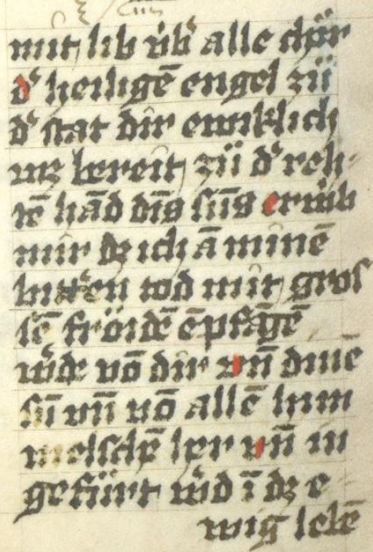 mit lib úbˀ alle chör
dˀ heiligē engel zü
dˀ stat dir ewiklich
uɞ bereit zü dˀ reh-
tē hād dīs sūs erwib
mir dɞ ich ā minē
bittˀen tod mit gros
sē fröidē ēpfāgē
wˀde vō dir vn̄ dinē
sū vn̄ vō allē him
melschē her vn̄ in
gefürt wˀd ī dɞ e
wig lebē